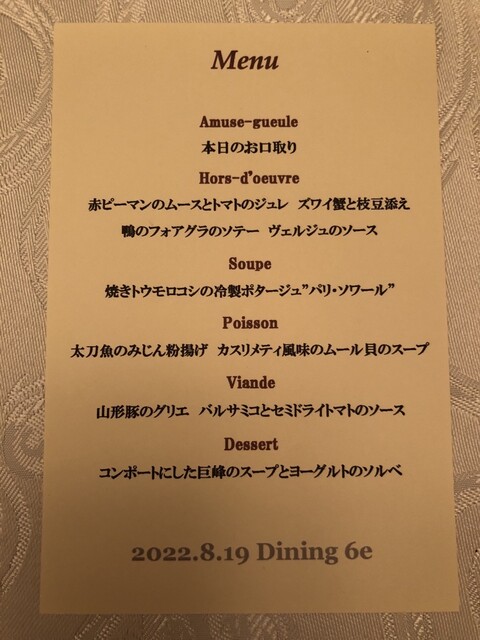 Menu
Amuse-gueule
本日のお口取り
Hors-d'oeuvre
赤ピーマンのムースとトマトのジュレ ズワイ蟹と枝豆添え
鴨のフォアグラのソテー ヴェルジュのソース
Soupe
焼きトウモロコシの冷製ポタージュ”パリ・ソワール”
Poisson
太刀魚のみじん粉揚げ カスリメティ風味のムール貝のスープ
Viande
山形豚のグリエ バルサミコとセミドライトマトのソース
Dessert
コンポートにした巨峰のスープとヨーグルトのソルベ
2022.8.19 Dining 6e